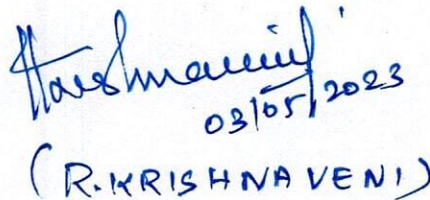 03/05/2023
(R.KRISHNAVENI)